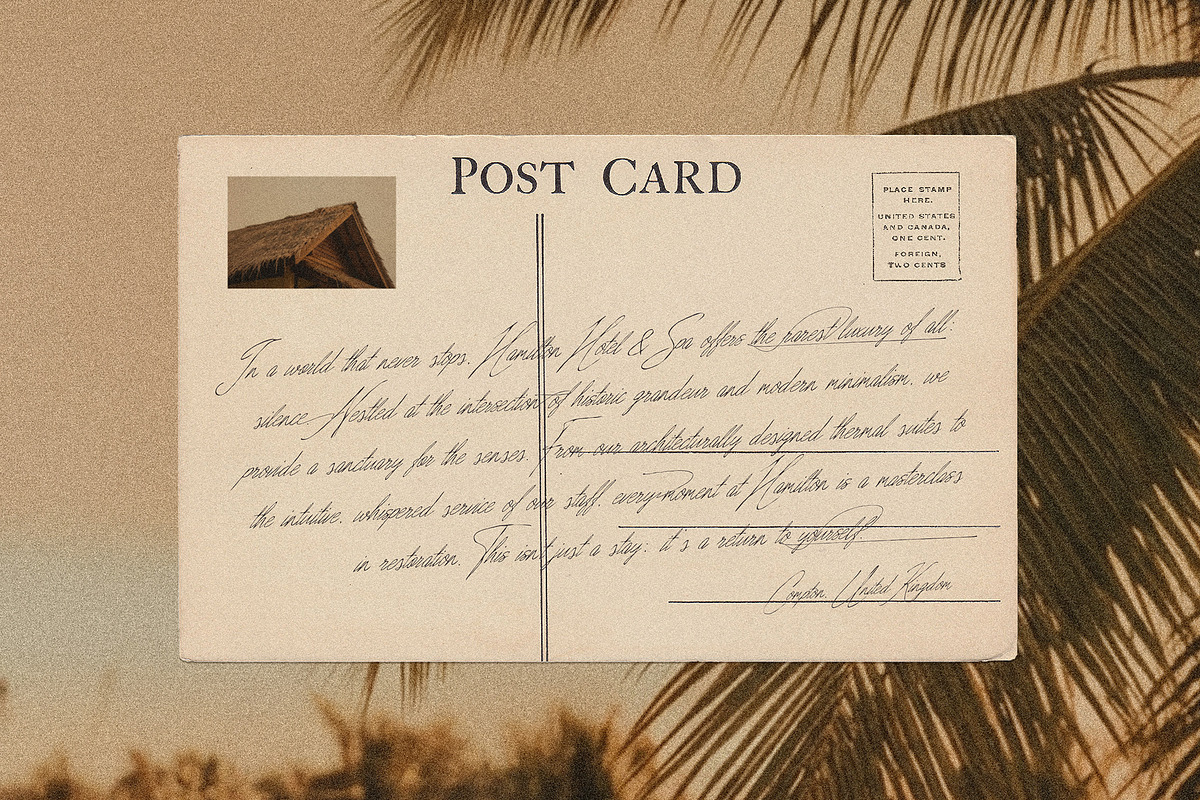 POST CARD
PLACE STAMP
HERE.
UNITED STATES
AND CANADA,
ONE CENT.
FOREIGN,
TWO CENTS
In a world that never stops, Hamilton Hotel & Spa offers the rarest luxury of all:
silence. Nestled at the intersection of historic grandeur and modern minimalism, we
provide a sanctuary for the senses. From our architecturally designed thermal suites to
the intuitive, whispered service of our staff, every moment at Hamilton is a masterclass
in restoration. This isn't just a stay; it's a return to yourself.
Compton, United Kingdom